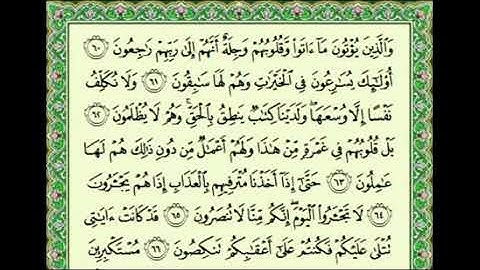 وَالَّذِينَ يُؤْتُونَ مَا ءَاتَوا وَّقُلُوبُهُمْ وَجِلَةٌ أَنَّهُمْ إِلَىٰ رَبِّهِمْ رَاجِعُونَ ﴿٦٠﴾
أُوْلَـٰٓئِكَ يُسَارِعُونَ فِي الْخَيْرَاتِ وَهُمْ لَهَا سَابِقُونَ ﴿٦١﴾ وَلَا نُكَلِّفُ
نَفْسًا إِلَّا وُسْعَهَا ۖ وَلَدَيْنَا كِتَابٌ يَنطِقُ بِالْحَقِّ ۚ وَهُمْ لَا يُظْلَمُونَ ﴿٦٢﴾
بَلْ قُلُوبُهُمْ فِي غَمْرَةٍ مِّنْ هَـٰذَا وَلَهُمْ أَعْمَالٌ مِّن دُونِ ذَٰلِكَ هُمْ لَهَا
عَامِلُونَ ﴿٦٣﴾ حَتَّىٰٓ إِذَآ أَخَذْنَا مُتْرَفِيهِم بِالْعَذَابِ إِذَا هُمْ يَجْـَٔرُونَ
﴿٦٤﴾ لَا تَجْـَٔرُوا الْيَوْمَ ۖ إِنَّكُم مِّنَّا لَا تُنصَرُونَ ﴿٦٥﴾ قَدْ كَانَتْ ءَايَـٰتِي
تُتْلَىٰ عَلَيْكُمْ فَكُنتُمْ عَلَىٰٓ أَعْقَابِكُمْ تَنكِصُونَ ﴿٦٦﴾ مُسْتَكْبِرِينَ